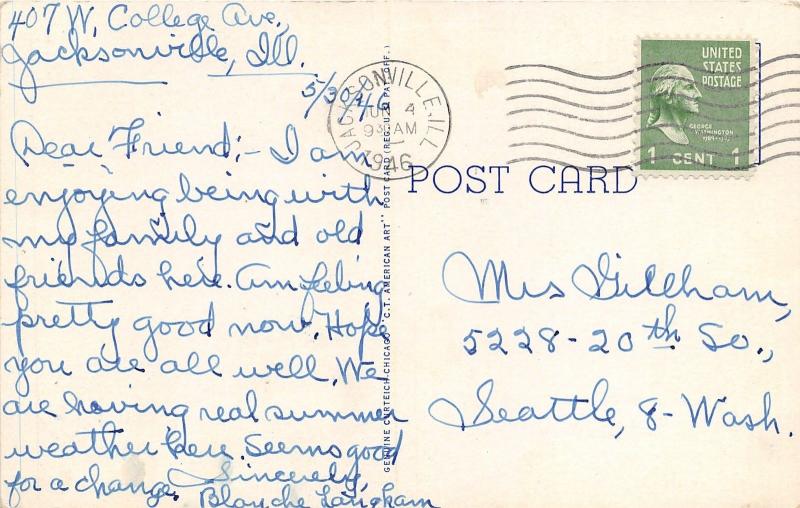 407 W. College Ave.,
Jacksonville, Ill.
5/30/46
Dear Friend:- I am
enjoying being with
my family and old
friends here. Am feeling
pretty good now. Hope
you are all well. We
are having real summer
weather here. Seems good
for a change. Sincerely,
Blanche Langham
GENUINE CURTEICH-CHICAGO "C.T. AMERICAN ART" POST CARD (REG. U.S. PAT. OFF.)
JACKSONVILLE, ILL.
JUN 4
9 30 AM
1946
UNITED
STATES
POSTAGE
GEORGE
WASHINGTON
1789-1797
1 CENT 1
POST CARD
Mrs Gillham,
5228-20th So.,
Seattle, 8-Wash.